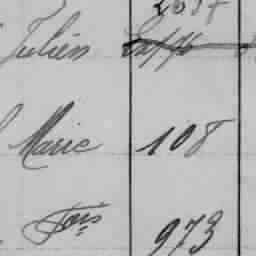 Julien
Marie 108
Fçois 973